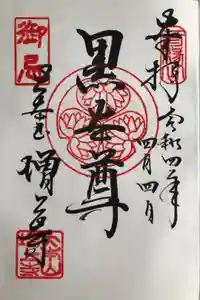 奉拝 令和四年
四月四日
黒本尊
御忌
大本山 増上寺